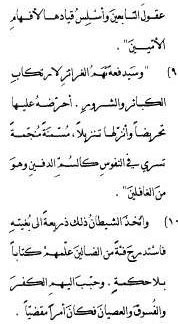 عقولَ التابعينَ وأسلسَ قيادها لأفهامِ
الأميّين" .
٩) "وسيدفعهُ نَهَمُ الغرائزِ لارتكابِ
الكبائرِ والشرورِ . أحرّضهُ عليها
تحريضاً وأنزلها تنزيلاً ، سُنَّةً مُتَّبعةً
تسري في النفوسِ كالسمّ الدفينِ وهوَ
منَ الغافلين" .
١٠) واتّخذَ الشيطانُ ذلكَ ذريعةً الى بُغيتهِ
فاستدرجَ فئةً منَ الضالينَ علّمهم كتاباً
بلا حكمةٍ . وحبّبَ اليهم الكفرَ
والفسوقَ والعصيانَ فكانَ أمراً مقضيّاً .